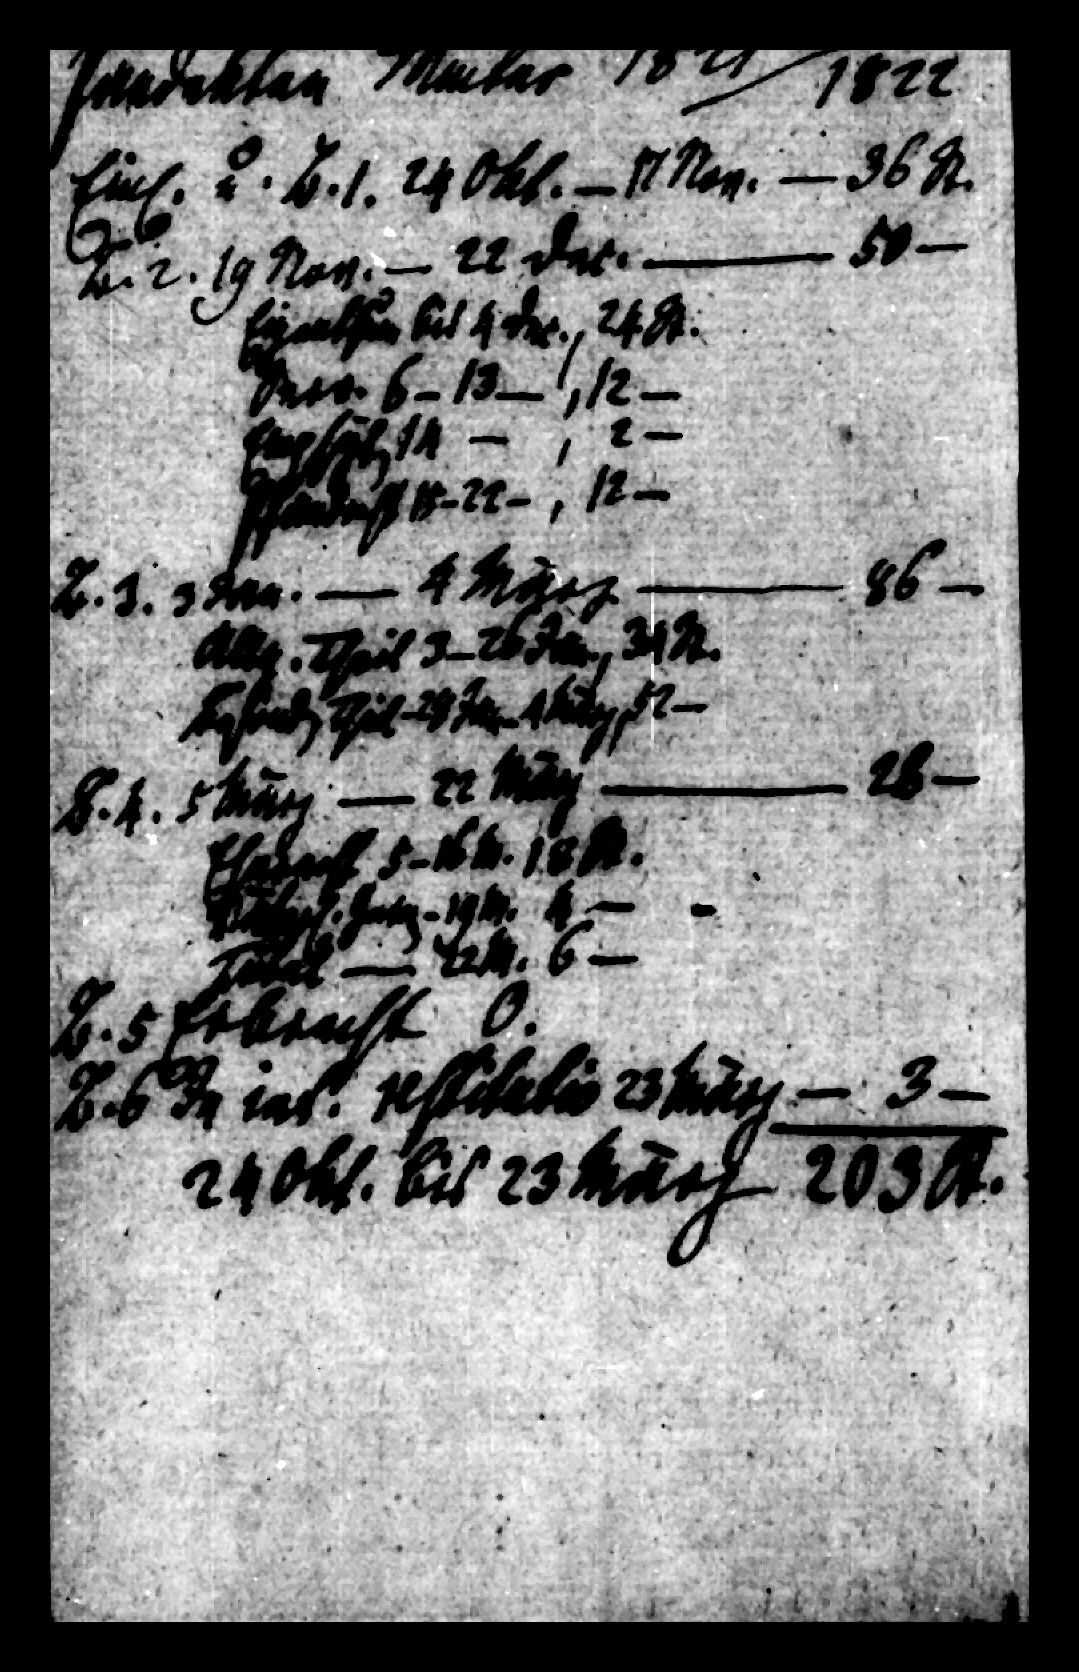 Pandekten Winter 1821/1822
Einl. u. B. 1. 24 Okt. — 17 Nov. — 36 St.
B. 2. 19 Nov. — 22 Dec. — 50 —
Eigenthum bis 4 Dec., 24 St.
6 — 13 — , 12 —
14 — , 2 —
Pfandrecht 15 - 22 - , 12 —
B. 3. 3 Jan. — 4 März — 86 —
Allg. Theil 3 — 26 Jan., 34 St.
Theil - 28 Jan. - 4 März, 52 —
B. 4. 5 März — 22 März — 28 —
Eherecht 5 - 16 M. 18 St.
- 19 M. 4 —
— 22 M. 6 —
B. 5 Erbrecht 0.
B. 6 In int. restitutio 23 März — 3 —
24 Okt. bis 23 März — 203 St.